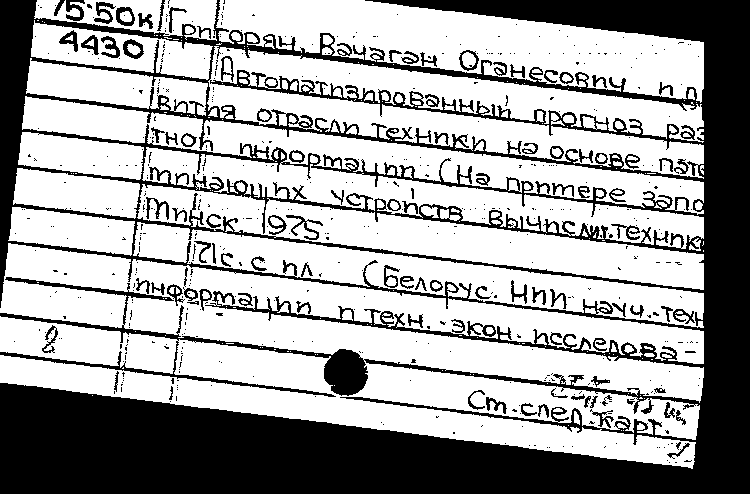 75-50к Григорян, Вачаган Оганесович и др
4430
Автоматизированный прогноз раз
вития отрасли техники на основе пате
тной информации. (На примере запо
минающих устройств вычислит. техники
Минск, 1975.
71с. с ил. (Белорус. НИИ науч.-техн
информации и техн.-экон. исследова-
8
Ст. след. карт.